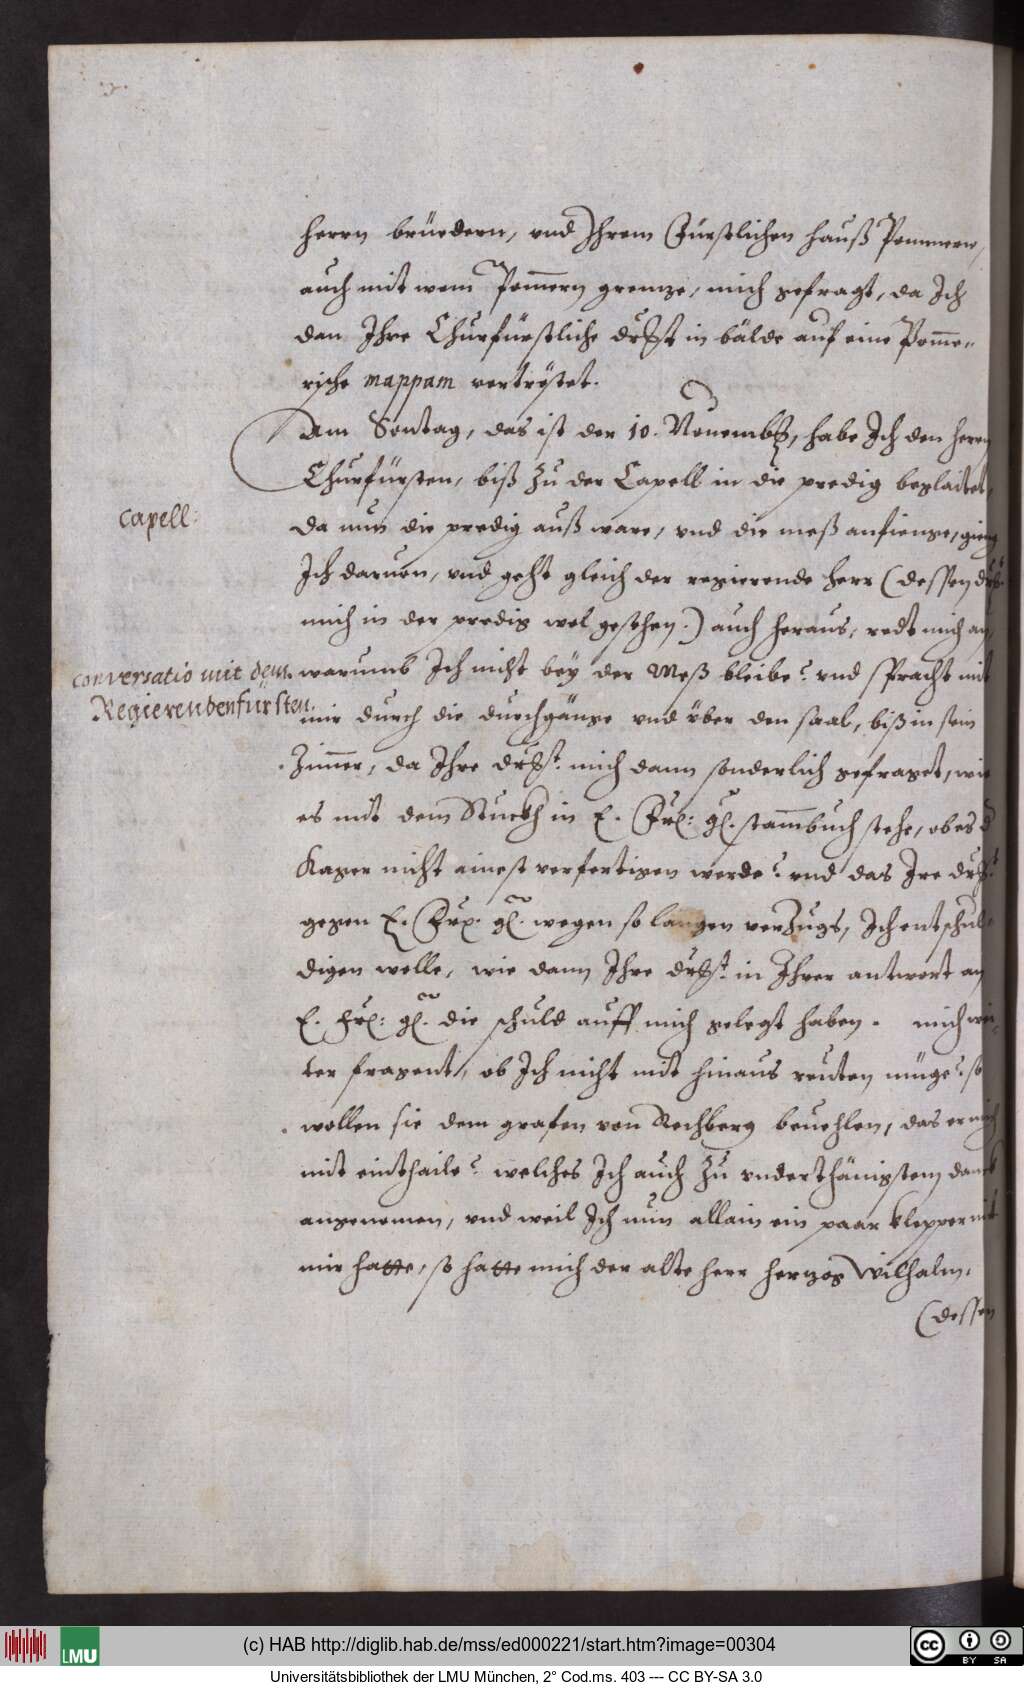 herrn brüedern, vnd Ihrem Fürstlichen hauß Pommern,
auch mit wem Pom̄ern grenze, mich gefragt, da Ich
dan Ihre Churfürstliche drhlt in bälde auf eine Pom̄e„
rische mappam vertröstet.
Am Sontag, das ist der 10. Nouemb, habe Ich den herrn
Churfürsten, biß zu der Capell in die predig beglaitet,
Capell:
da nun die predig auß ware, vnd die meß anfienge, gieng
Ich daruon, vnd geht gleich der regierende herr (dessen drhlt
mich in der predig wol gesehen.) auch heraus, redt mich an,
conversatio mit dem
Regierenden fürsten.
warumb Ich nicht bey der Meß bleibe? vnd spracht mit
mir durch die durchgänge vnd über den saal, biß in sein
Zim̄er, da Ihre drhlt. mich dann sonderlich gefraget, wie
es mit dem Stuckh in E. Frl: gl. stam̄buch stehe, ob es d
Kager nicht ainest verfertigen werde? vnd das Ire drhlt
gegen E. Frl. gl. wegen so langen verzugs, Ich entschul„
digen welle, wie dann Ihre drhlt. in Ihrer antwort an
E. Frl: gl. die schuld auff mich gelegt haben. mich wei„
ter fragent, ob Ich nicht mit hinaus reuten müge? so
wollen sie dem grafen von Rechberg beuehlen, das er mich
mit einthaile? welches Ich auch zu vnderthänigstem danck
angenomen, vnd weil Ich nun allain ein paar klepper mit
mir hatte, so hatte mich der alte herr herzog Wilhalm.
(dessen
(c) HAB http://diglib.hab.de/mss/ed000221/start.htm?image=00304
LMU
cc BY SA
Universitätsbibliothek der LMU München, 2° Cod.ms. 403 --- CC BY-SA 3.0